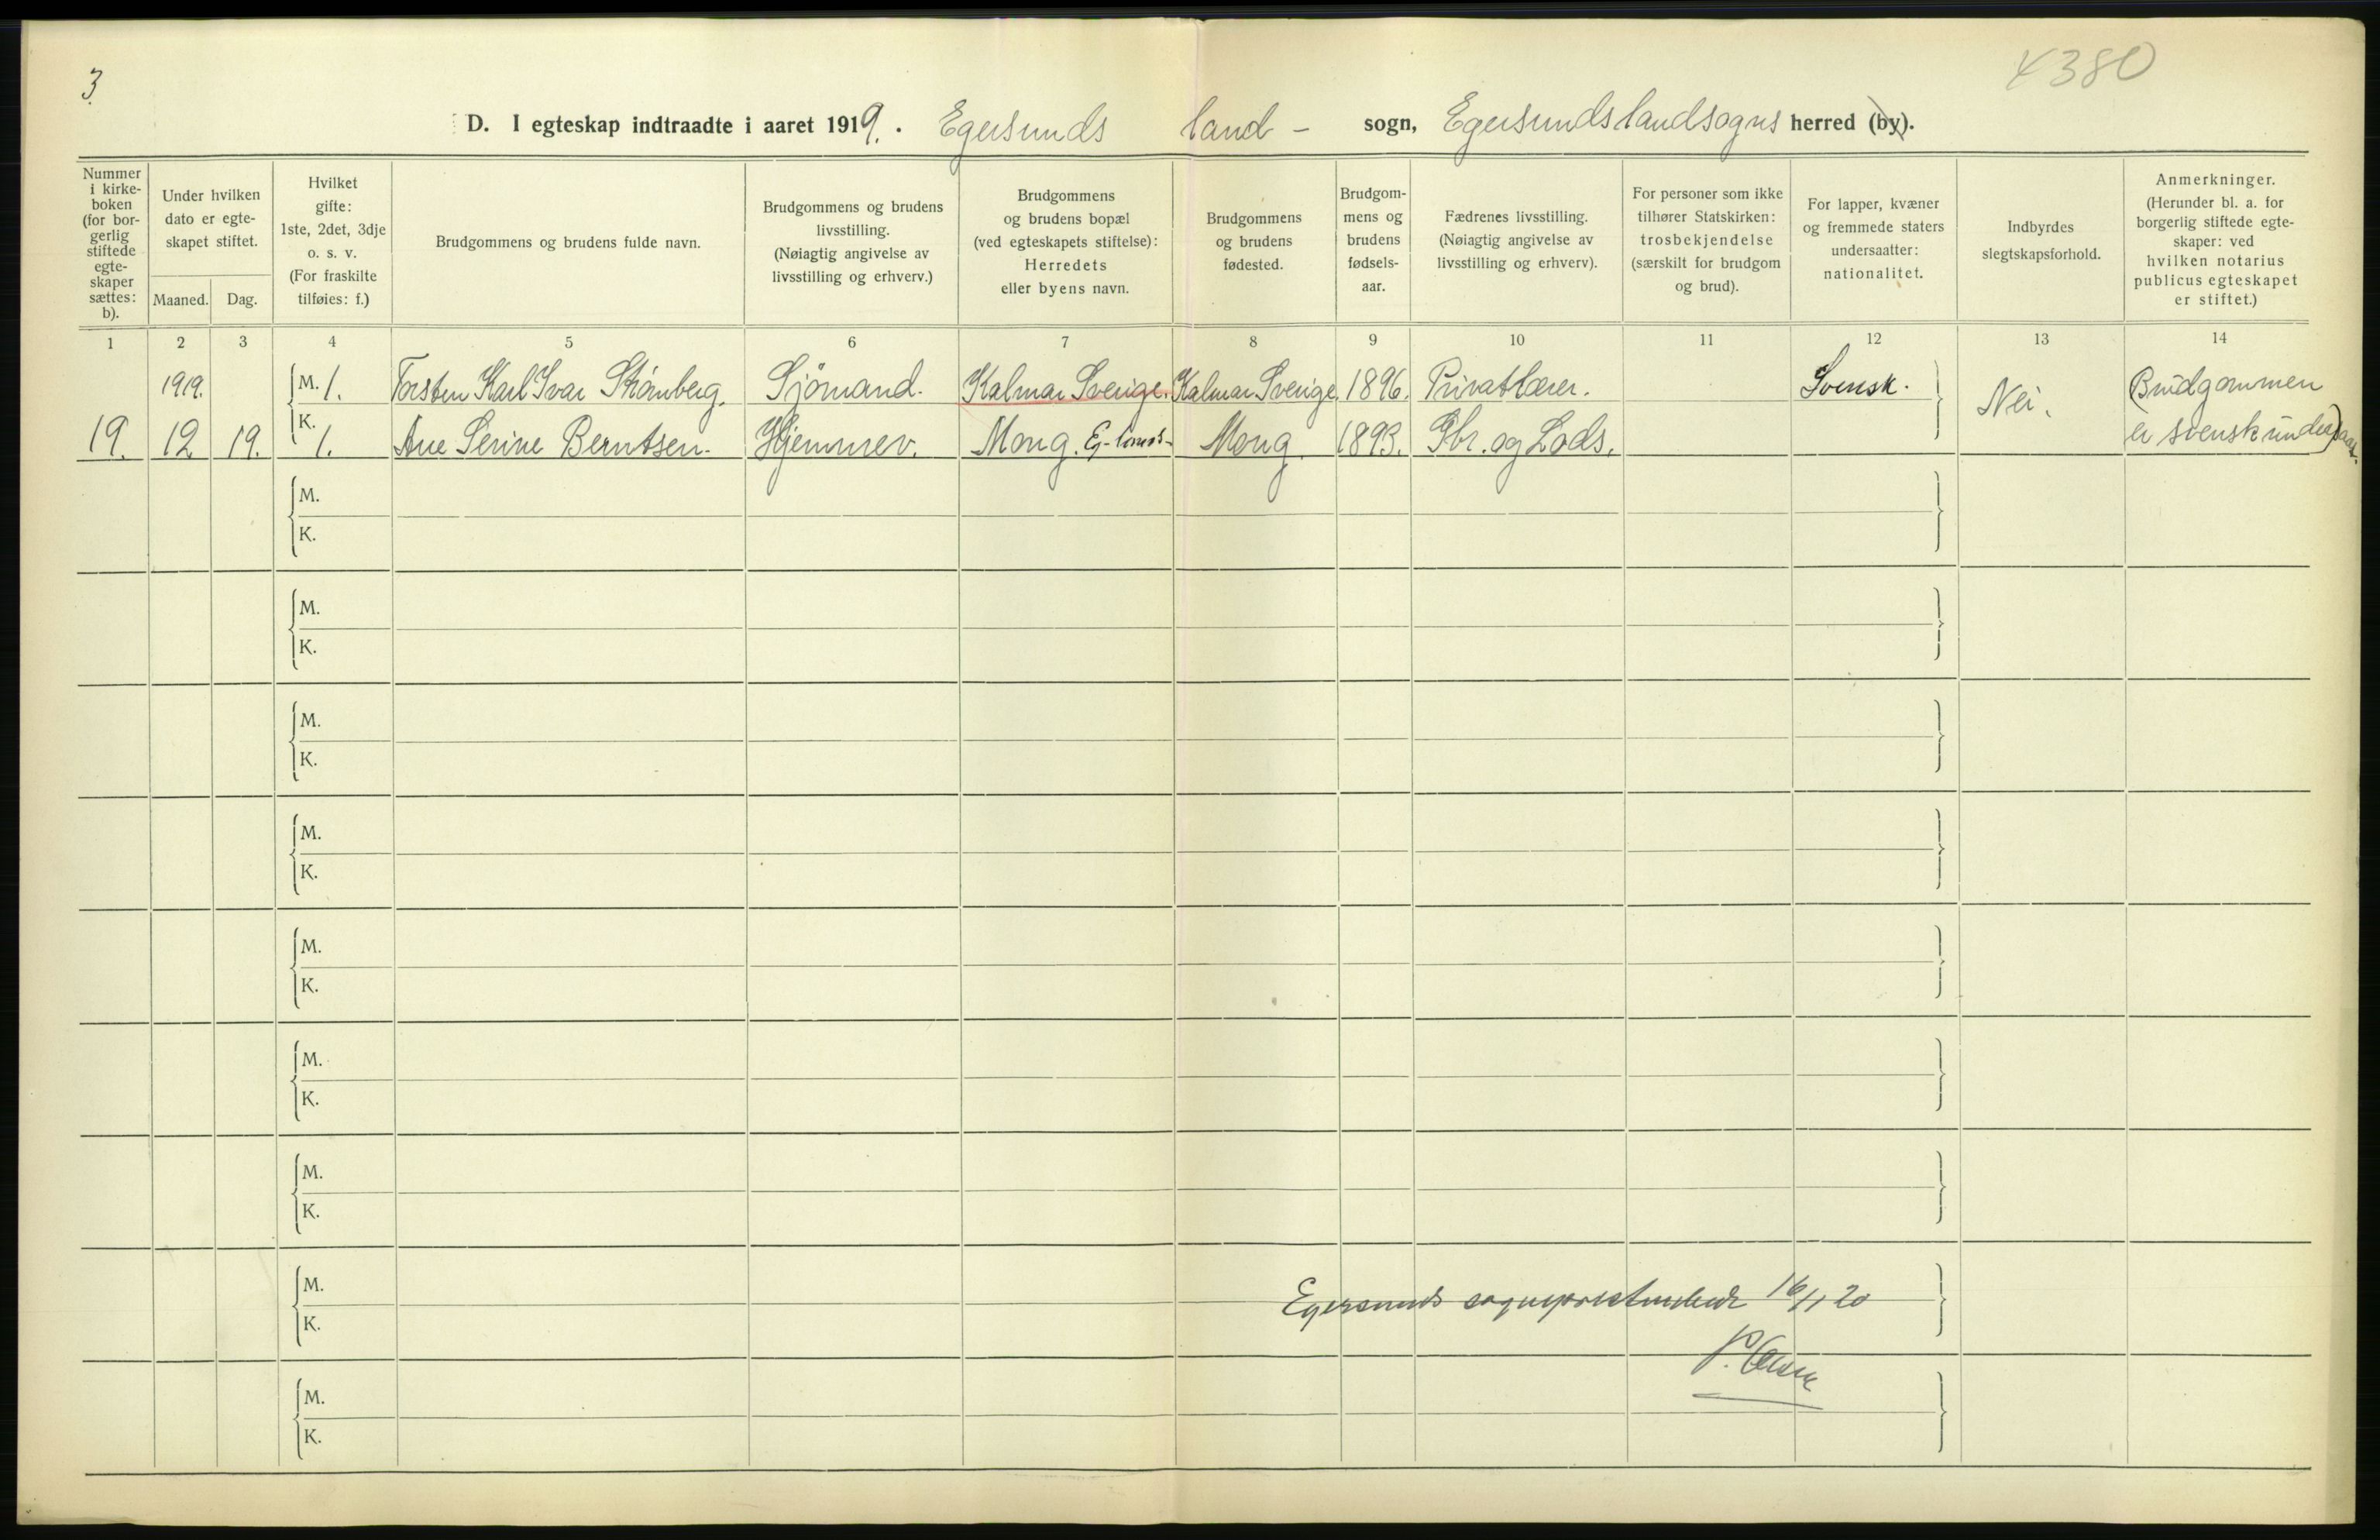 3.
4380
D. I egteskap indtraadte i aaret 1919. Egersunds land- sogn, Egersundslandsogns herred (by).
Nummer i kirke- boken (for bor- gerlig stiftede egte- skaper sættes: b).
Under hvilken dato er egte- skapet stiftet.
Maaned. Dag.
Hvilket gifte: 1ste, 2det, 3dje o. s. v. (For fraskilte tilføies: f.)
Brudgommens og brudens fulde navn.
Brudgommens og brudens livsstilling. (Nøiagtig angivelse av livsstilling og erhverv.)
Brudgommens og brudens bopæl (ved egteskapets stiftelse): Herredets eller byens navn.
Brudgommens og brudens fødested.
Brudgom- mens og brudens fødsels- aar.
Fædrenes livsstilling. (Nøiagtig angivelse av livsstilling og erhverv).
For personer som ikke tilhører Statskirken: trosbekjendelse (særskilt for brudgom og brud).
For lapper, kvæner og fremmede staters undersaatter: nationalitet.
Indbyrdes slegtskapsforhold.
Anmerkninger. (Herunder bl. a. for borgerlig stiftede egte- skaper: ved hvilken notarius publicus egteskapet er stiftet.)
1 2 3 4 5 6 7 8 9 10 11 12 13 14
1919. M. 1. Torsten Karl Ivar Strömberg. Sjömand. Kalmar Sverige. Kalmar Sverige. 1896. Privatlærer. Svensk. Nei. (Brudgommen
19. 12 19. K. 1. Ane Serine Berntsen. Hjemmev. Mong. Eg-lands- Mong. 1893. Gbr. og Lods. er svensk undersaat)
M.
K.
M.
K.
M.
K.
M.
K.
M.
K.
M.
K.
M.
K.
M.
K.
Egersunds sogneprestembede 16/1 20
M.
K.